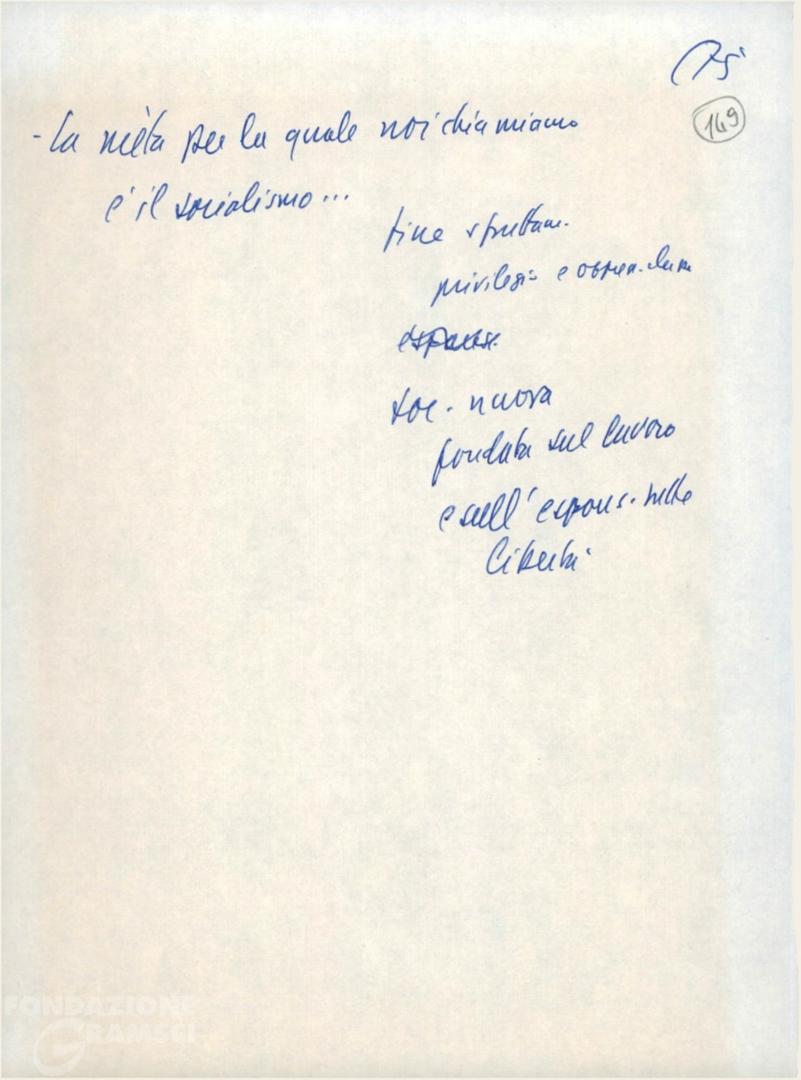 75
149
- La mèta per la quale noi chiamiamo
è il socialismo...
fine sfruttam.
privilegi e
espans.
soc. nuova
fondata sul lavoro
e sull'espans. delle
libertà
FONDAZIONE
GRAMSCI